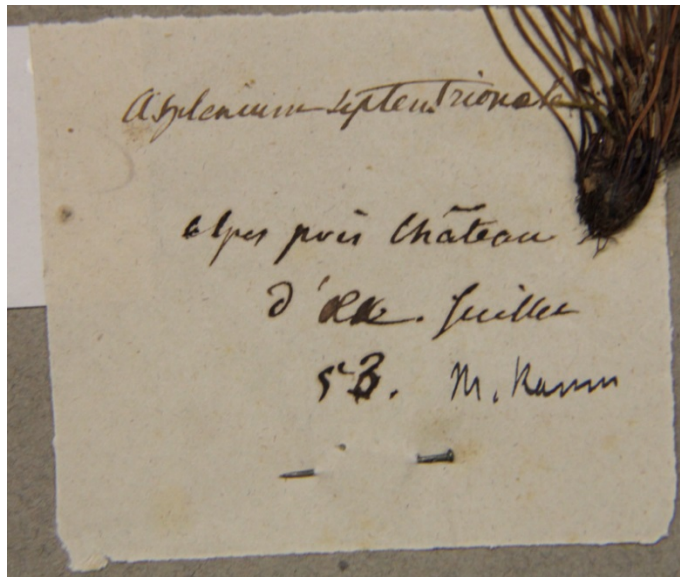 Asplenium septentrionale
alpes près Château
d'Oex. Juillet
53. M. Kamm